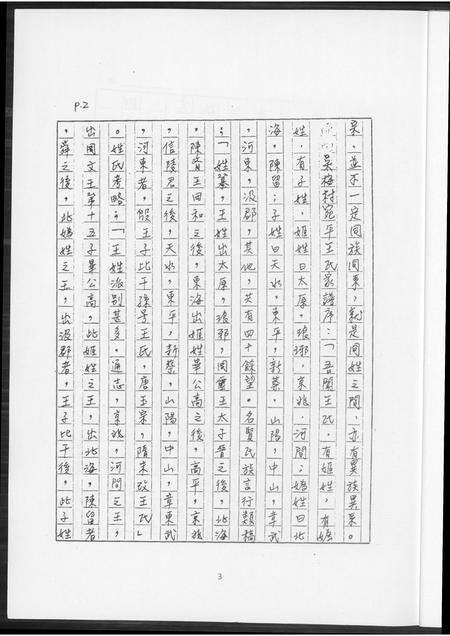 P.2
宗，並不一定同族同宗，就是同姓之間，亦有異族異宗。
吳梅村宛平王氏家譜序：「吾聞王氏，有姬姓，有媯
姓，有子姓，姬姓曰太原，琅琊，京兆，河間；媯姓曰北
海，陳留；子姓曰天水，東平，新蔡，山陽，中山，章武
，河東，汲郡，其他，共有四十餘望。名賢氏族言行類稿
：「姓纂，王姓出太原，琅邪，周靈王太子晉之後，北海
，陳留王田和之後，東海出姬姓畢公高之後，高平，京兆
，信陵君之後，天水，東平，新蔡，山陽，中山，章東武
，河東者，殷王子比干孫号王氏，唐王宗，隋末改王氏」
。姓氏考略：「王姓派別甚多。通志，京兆，河間之王，
出周文王第十五子畢公高，此姬姓之王，出北海，陳留者
，舜之後，此媯姓之王，出汲郡者，王子比干後，此子姓
3